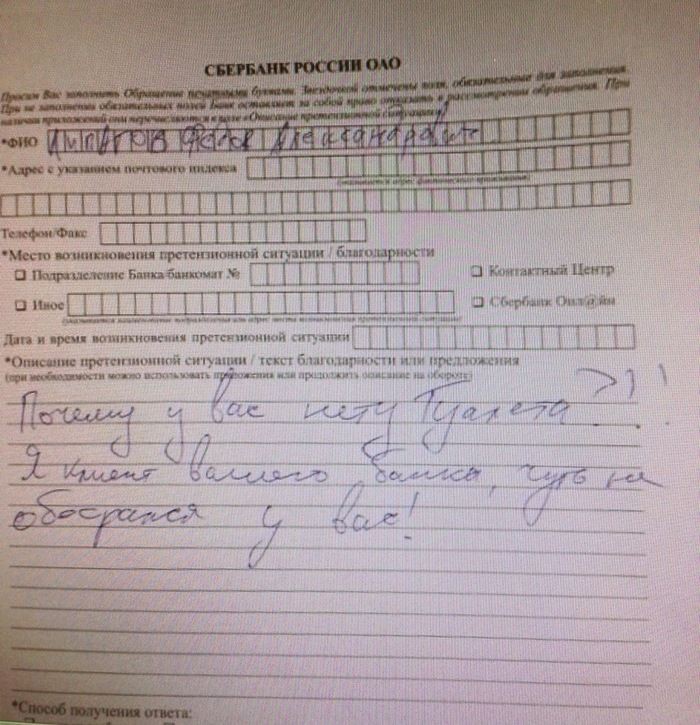 СБЕРБАНК РОССИИ ОАО
Просим Вас заполнить Обращение печатными буквами. Звездочкой отмечены поля, обязательные для заполнения.
При не заполнении обязательных полей Банк оставляет за собой право отказать в рассмотрении обращения. При
наличии приложений они перечисляются в поле «Описание претензионной ситуации»
*ФИО
*Адрес с указанием почтового индекса
(указывается адрес фактического проживания)
Телефон/Факс
*Место возникновения претензионной ситуации / благодарности
Подразделение Банка/банкомат № Контактный Центр
Иное Сбербанк Онл@йн
(указывается наименование подразделения или адрес места возникновения претензионной ситуации)
Дата и время возникновения претензионной ситуации
*Описание претензионной ситуации / текст благодарности или предложения
(при необходимости можно использовать приложения или продолжить описание на обороте)
Почему у вас нету Туалета?!!
Я клиент вашего банка, чуть не
обосрался у вас!
*Способ получения ответа: